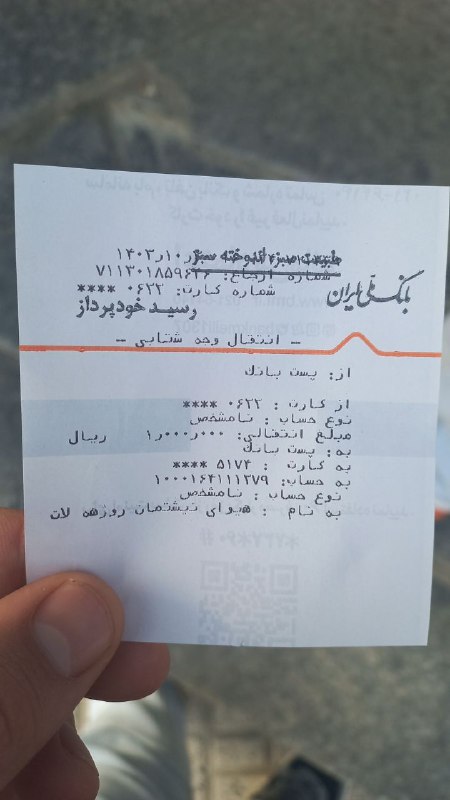 ۱۰ر۱۴۰۳
شماره ارجاع:
شماره کارت: ۰۶۲۲ ****
بانک ملی ایران
رسید خودپرداز
- انتقال وجه شتابی -
از: پست بانک
از کارت : ۰۶۲۲ ****
نوع حساب : نامشخص
مبلغ انتقالی: ۰۰۰ر۰۰۰ر۱ ریال
به: پست بانک
به کارت : ۵۱۷۴ ****
به حساب: ۱۰۰۰۱۶۴۱۱۱۲۷۹
نوع حساب : نامشخص
به نام : هیوای نیشتمان روژهه لات